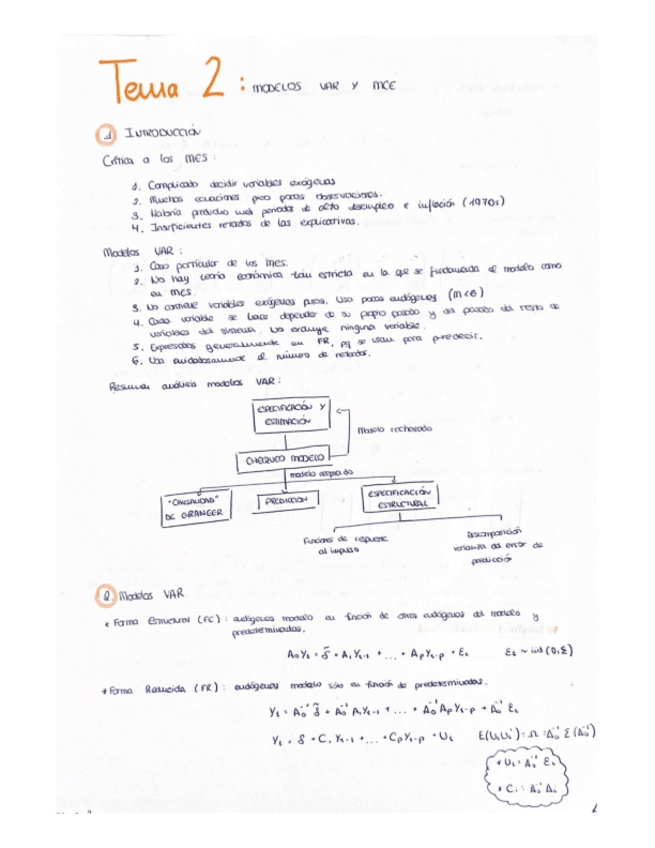 Tema 2: MODELOS VAR Y MCE
1 INTRODUCCIÓN
Crítica a los MES:
1. Complicado decidir variables exógenas
2. Muchas ecuaciones pero pocas observaciones.
3. Habría predicho mal periodos de alto desempleo e inflación (1970s)
4. Insuficientes retardos de las explicativas.
Modelos VAR:
1. Caso particular de los MES.
2. No hay teoría económica tan estricta en la que se fundamenta el modelo como
en MES.
3. No contiene variables exógenas puras. Usa pocas endógenas (m<6)
4. Cada variable se hace depender de su propio pasado y del pasado del resto de
variables del sistema. No excluye ninguna variable.
5. Expresados generalmente en FR, pq se usan para predecir.
6. Usa cuidadosamente el número de retardos.
Resumen análisis modelos VAR:
ESPECIFICACIÓN Y
ESTIMACIÓN
Modelo rechazado
CHEQUEO MODELO
modelo aceptado
"CAUSALIDAD"
DE GRANGER
PREDICCIÓN
ESPECIFICACIÓN
ESTRUCTURAL
Funciones de respuesta
al impulso
Descomposición
varianza del error de
predicción
2. Modelos VAR
* Forma Estructural (FE): endógenas modelo en función de otras endógenas del modelo y
predeterminadas.
A₀Yt = δ̃ + A₁Yt-1 + ... + ApYt-p + Ɛt    Ɛt ~ iid (0,Σ)
* Forma Reducida (FR): endógenas modelo sólo en función de predeterminadas.
Yt = A₀⁻¹ δ̃ + A₀⁻¹ A₁Yt-1 + ... + A₀⁻¹ ApYt-p + A₀⁻¹ Ɛt
Yt = δ + C₁ Yt-1 + ... + CpYt-p + Ut    E(UtUt') = Ω = A₀⁻¹ Σ (A₀⁻¹)'
* Ut = A₀⁻¹ Ɛt
* Ci = A₀⁻¹ Ai